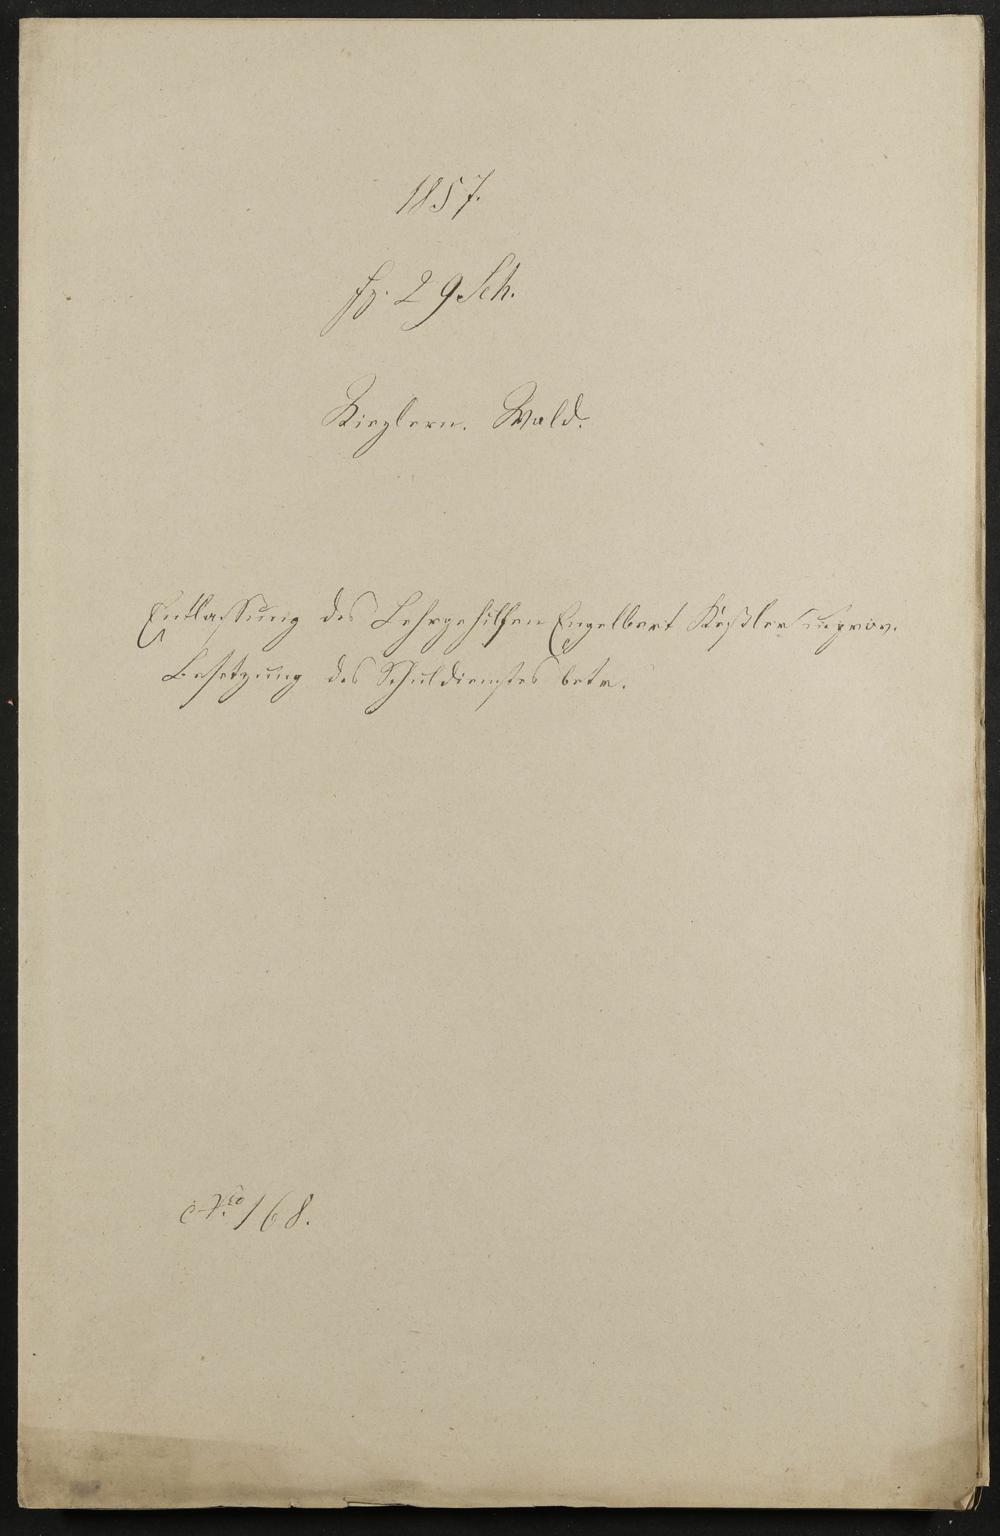 1857.
fz. 29 Sch.
Wald.
Entlassung des Lehrgehilfen Engelbert Keßler u. prov.
Besetzung des Schuldienstes betr.
No 168.